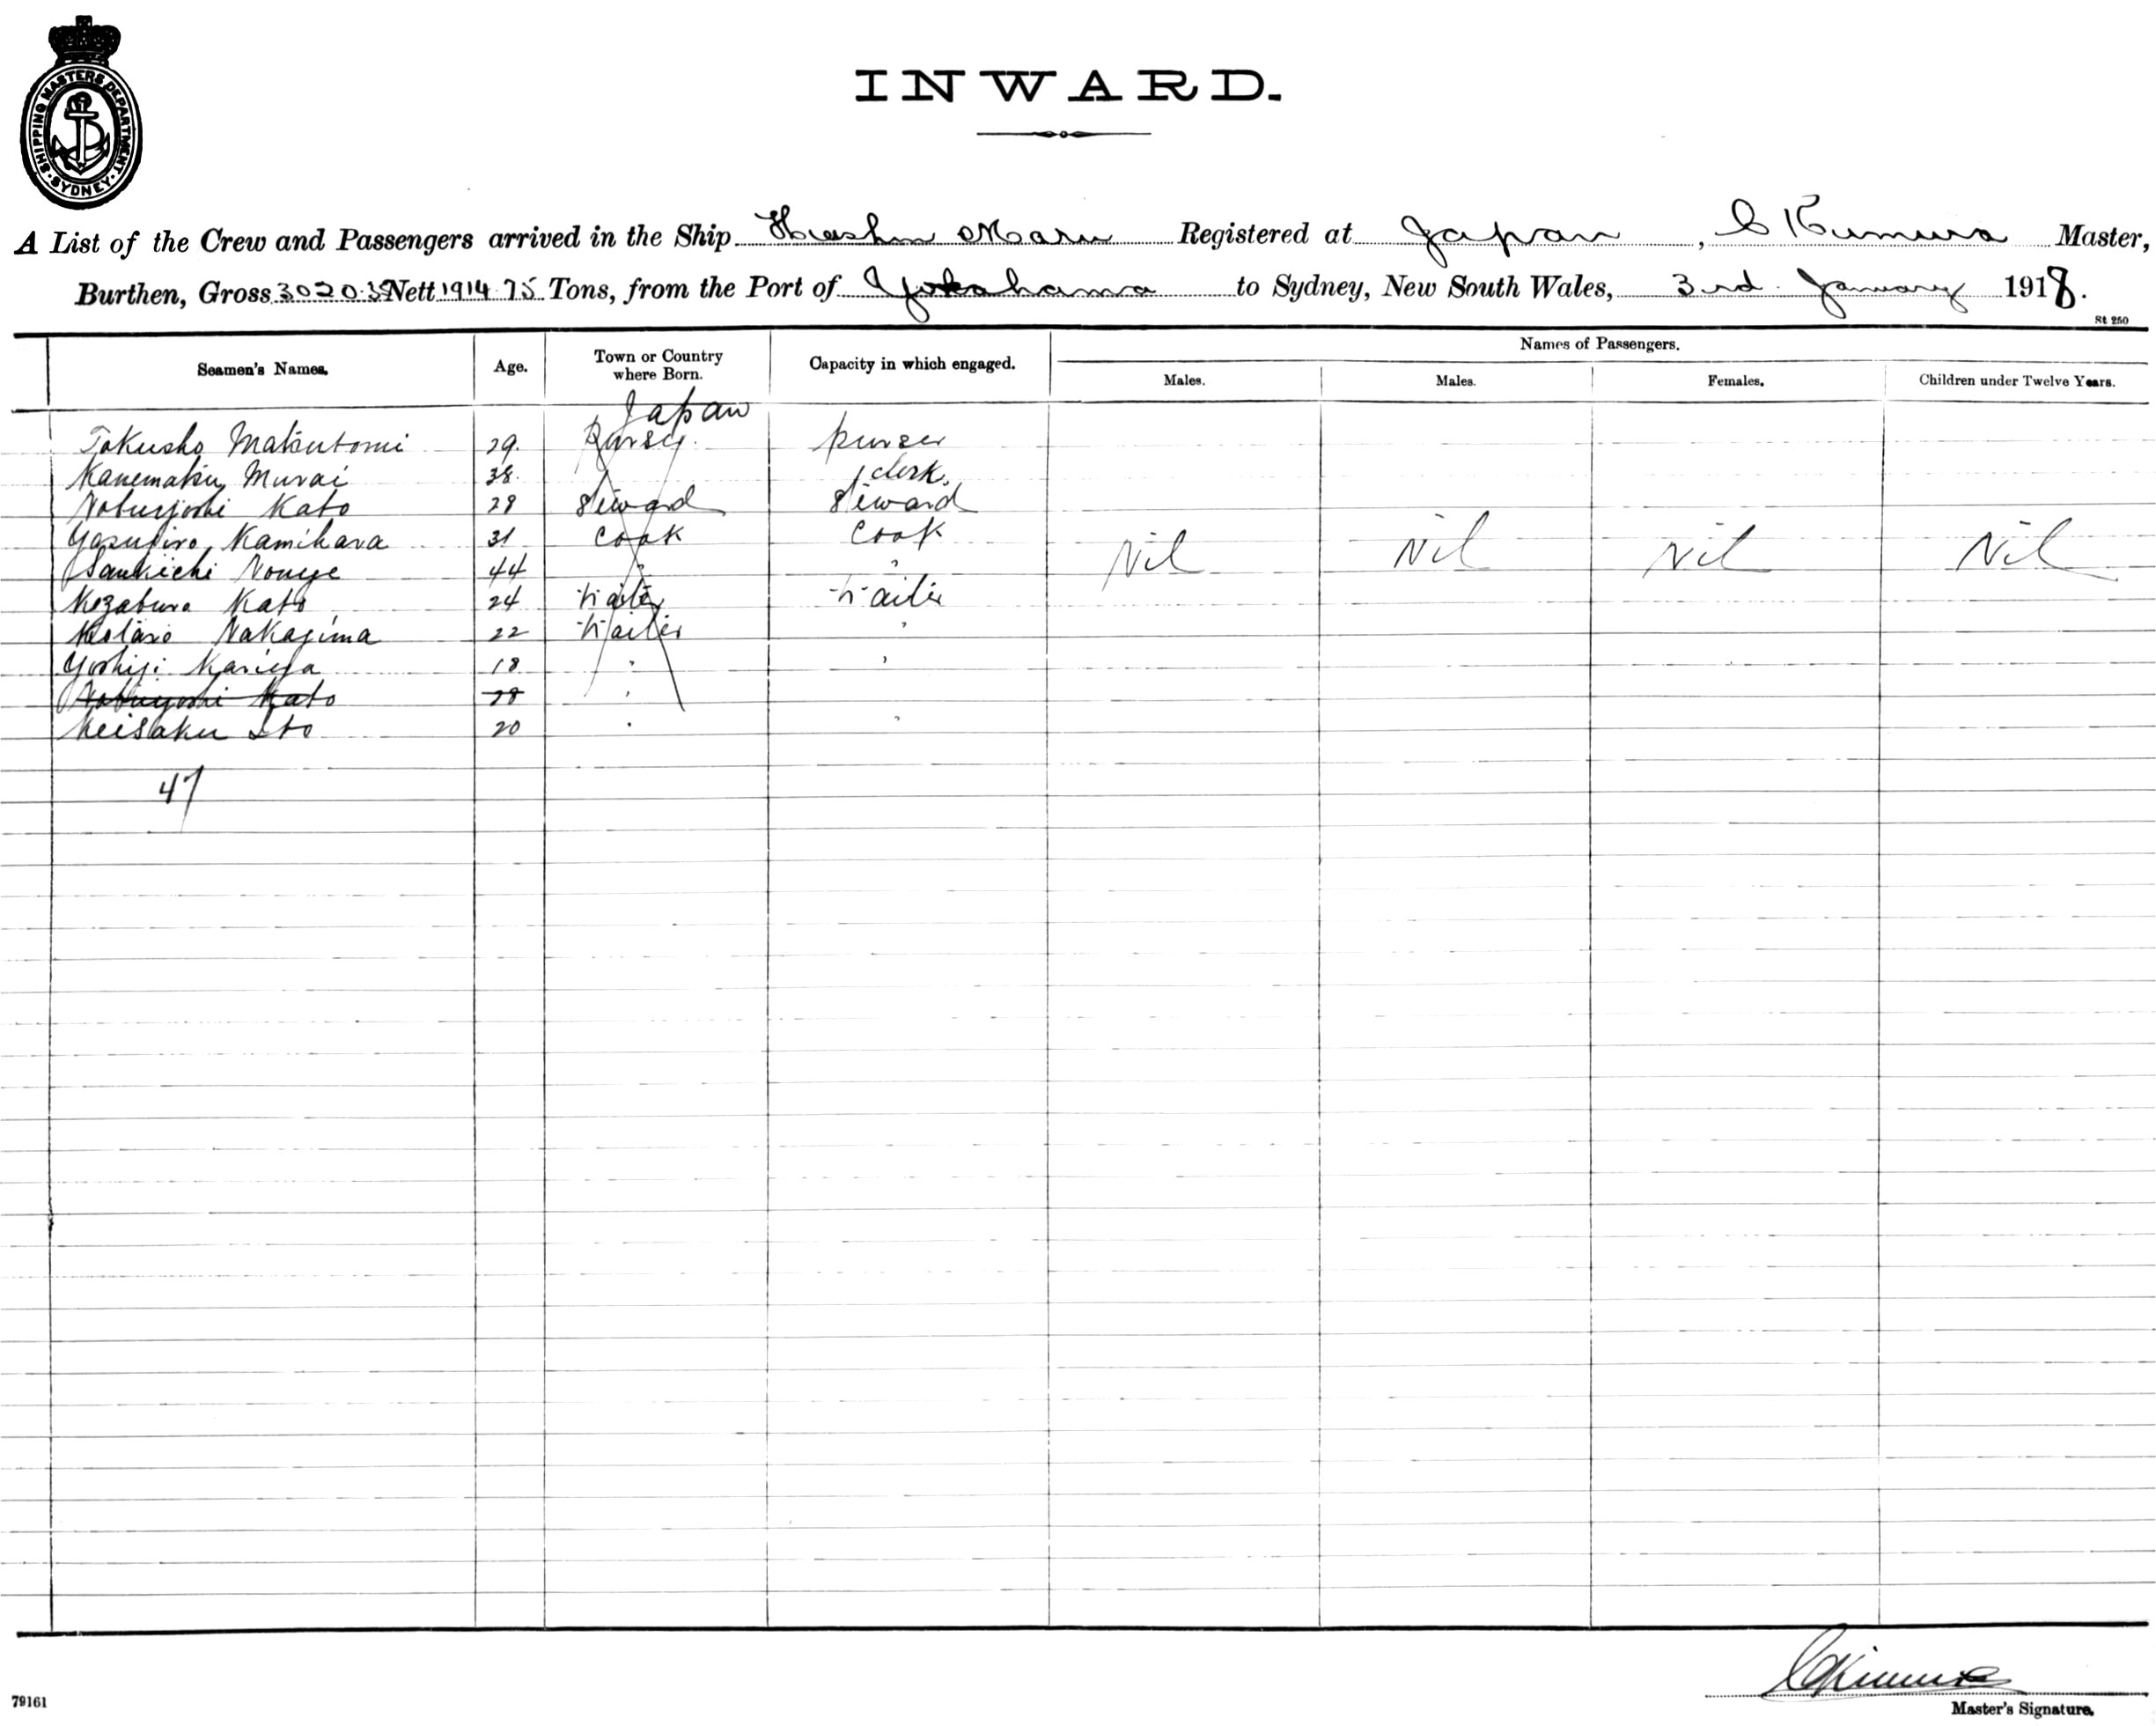 SHIPPING MASTERS DEPARTMENT · SYDNEY ·
INWARD.
A List of the Crew and Passengers arrived in the Ship Maru Registered at Japan, Master,
Burthen, Gross 3020.3 Nett 1914.75 Tons, from the Port of Yokohama to Sydney, New South Wales, 3rd January 1918.
St 250
Names of Passengers.
Seamen's Names. Age. Town or Country where Born. Capacity in which engaged. Males. Males. Females. Children under Twelve Years.
Japan
Tokusho Matsutomi 29. Purser purser
Kanematsu Murai 38. " clerk.
Nobuyoshi Kato 28 Steward Steward
Kamihara 31 Cook Cook
Sankichi Nouye 44 " " Nil Nil Nil Nil
Kato 24 Waiter Waiter
Nakajima 22 Waiter "
Yoshiji Kariya 18 " "
Nobuyoshi Kato 28 "
Keisaku Ito 20 " "
47
79161
Master's Signature.